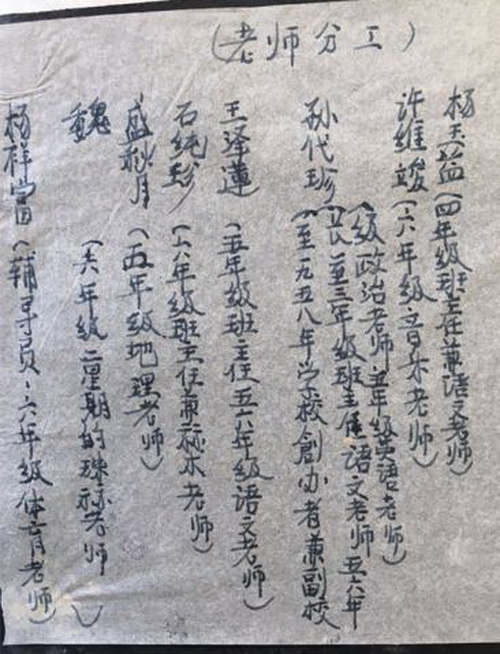 （老师分工）
杨玉益（四年级班主任兼语文老师）
许维竣（六年级音乐老师）
孙代珍（至一九五八年学校創办者兼副校
長至三年级班主任语文老师五六年
级政治老师五年级英语老师）
王泽蓮（五年级班主任五六年级语文老师）
石纯珍（六年级班主任兼祘术老师）
盛秋月（五年级地理老师）
魏（六年级二星期的珠祘老师）
杨祥當（辅导员·六年级体育老师）